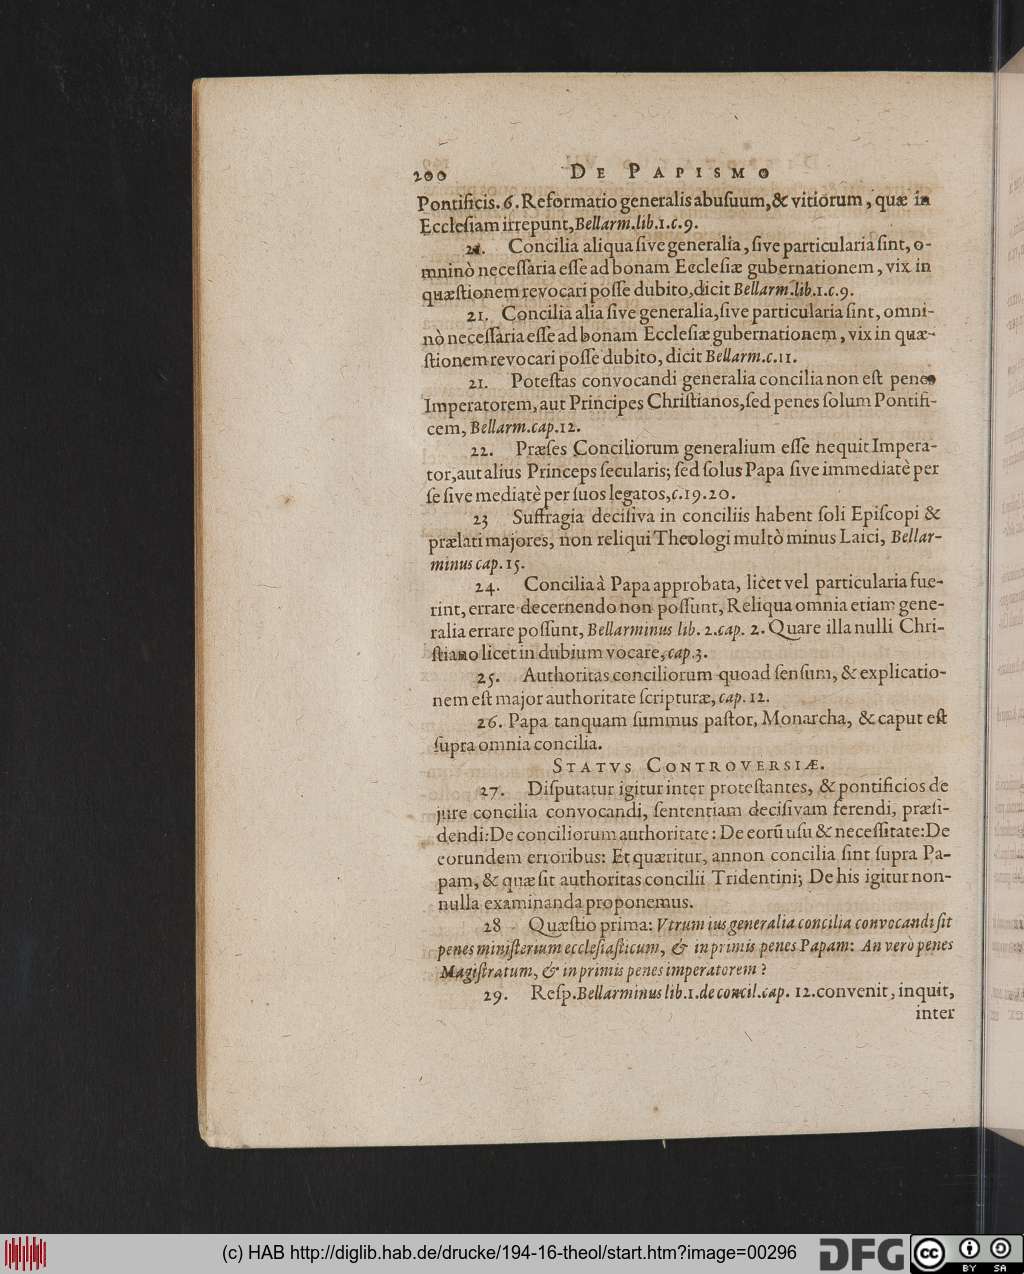 200 DE PAPISMO
Pontificis. 6. Reformatio generalis abuſuum, & vitiorum, quæ in
Eccleſiam irrepunt, Bellarm. lib. 1. c. 9.
21. Concilia aliqua ſive generalia, ſive particularia ſint, o-
mninò neceſſaria eſſe ad bonam Eccleſiæ gubernationem, vix in
quæſtionem revocari poſſe dubito, dicit Bellarm. lib. 1. c. 9.
21. Concilia alia ſive generalia, ſive particularia ſint, omni-
nò neceſſaria eſſe ad bonam Eccleſiæ gubernationem, vix in quæ-
ſtionem revocari poſſe dubito, dicit Bellarm. c. 11.
21. Poteſtas convocandi generalia concilia non eſt penes
Imperatorem, aut Principes Chriſtianos, ſed penes ſolum Pontifi-
cem, Bellarm. cap. 12.
22. Præſes Conciliorum generalium eſſe nequit Impera-
tor, aut alius Princeps ſecularis; ſed ſolus Papa ſive immediatè per
ſe ſive mediatè per ſuos legatos, c. 19. 20.
23 Suffragia deciſiva in conciliis habent ſoli Epiſcopi &
prælati majores, non reliqui Theologi multò minus Laici, Bellar-
minus cap. 15.
24. Concilia à Papa approbata, licet vel particularia fue-
rint, errare decernendo non poſſunt, Reliqua omnia etiam gene-
ralia errare poſſunt, Bellarminus lib. 2. cap. 2. Quare illa nulli Chri-
ſtiano licet in dubium vocare, cap. 3.
25. Authoritas conciliorum quoad ſenſum, & explicatio-
nem eſt major authoritate ſcripturæ, cap. 12.
26. Papa tanquam ſummus paſtor, Monarcha, & caput eſt
ſupra omnia concilia.
STATVS CONTROVERSIÆ.
27. Diſputatur igitur inter proteſtantes, & pontificios de
jure concilia convocandi, ſententiam deciſivam ferendi, præſi-
dendi: De conciliorum authoritate: De eorū uſu & neceſſitate: De
eorundem erroribus: Et quæritur, annon concilia ſint ſupra Pa-
pam, & quæ ſit authoritas concilii Tridentini; De his igitur non-
nulla examinanda proponemus.
28 Quæſtio prima: Vtrum ius generalia concilia convocandi ſit
penes miniſterium eccleſiaſticum, & inprimis penes Papam: An verò penes
Magiſtratum, & inprimis penes imperatorem?
29. Reſp. Bellarminus lib. 1. de concil. cap. 12. convenit, inquit,
inter
(c) HAB http://diglib.hab.de/drucke/194-16-theol/start.htm?image=00296
DFG
cc BY SA